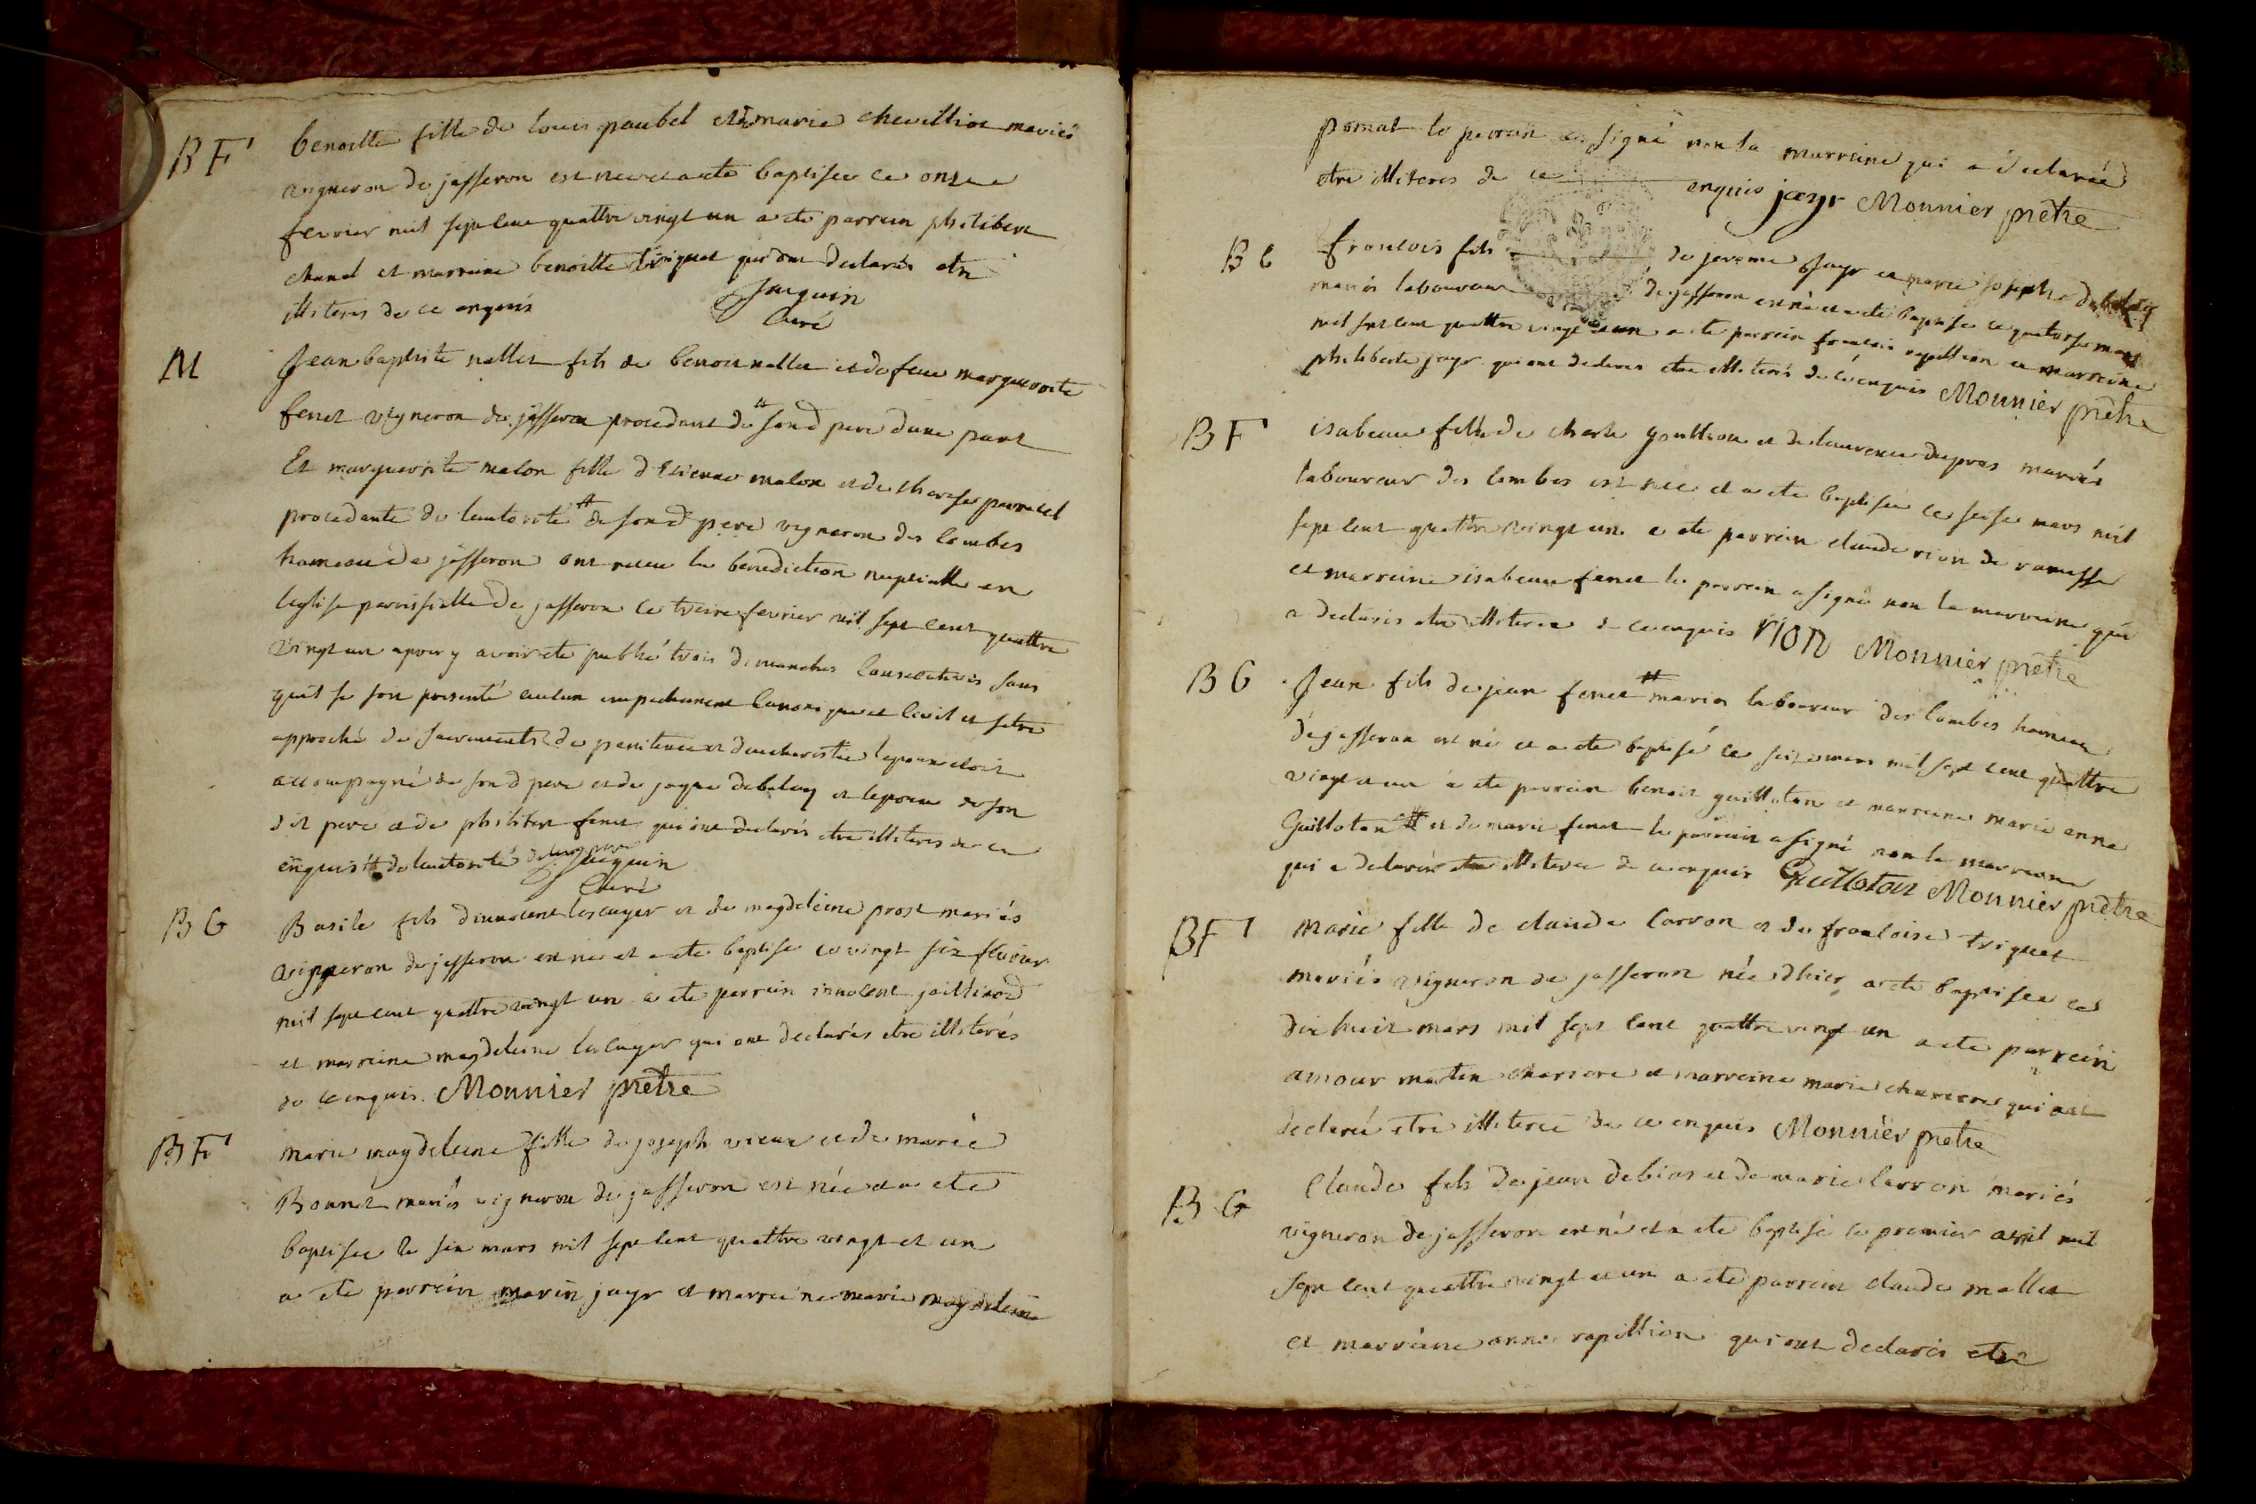 BF
benoitte fille de louis paubel et de marie chevillion mariés
vigneron de jasseron est née et a ete baptisee ce onze
fevrier mil sept cent quattre vingt un a ete parrein philibert
chanel et marreine benoitte triquet qui ont declarés etre
illiteres de ce enquis Jacquin
Curé
M
Jean baptiste mallet fils de benoit mallet et de feue marguerite
fenet vigneron de jasseron procedant de # son d pere dune part
Et marguerite malon fille d'Etienne malon et de therese
procedante de lautorité de son d pere vigneron des Combes
hameau de jasseron ont recu la benediction nuptialle en
leglise paroissialle de jasseron ce treize fevrier mil sept cent quattre
vingt un apour y avoir ete publié trois dimanches Consecutives sans
quil se soit presenté aucun empechement Canonique et Civil et setre
approchés de sacrements de penitence et deucharistie lepoux etoit
accompagné de son d pere et de joque debeley et lepouse de son
dit pere et de philibert fenet qui ont declarés etre illiteres de ce
enquis # de lautorité Jacquin
Curé
BG
Basile fils dinnocent lescuyer et de magdeleine prost mariés
vigneron de jasseron est né et a ete baptise ce vingt six fevrier
mil sept cent quattre vingt un a ete parrein innocent
et marreine magdeleine lescuyer qui ont declarés etre illiterés
de ce enquis. Monnier prêtre
BF
marie magdeleine fille de joseph vieux et de marie
Bonnet mariés vigneron de jasseron est née et a ete
baptisee le six mars mil sept cent quattre vingt et un
a ete parrein marin jayr et marreine marie magdeleine
pomat le parrein a signé non la marreine qui a declarée
etre illiteres de ce enquis jayr Monnier prêtre
BG
francois fils de jerome jayr et marie josephe debeley
mariés laboureur de jasseron est né et a ete baptise ce quatorse mars
mil sept cent quattre vingt un a ete parrein francois rapillion et marreine
philiberte jayr qui ont declares etre illiterés de ce enquis Monnier prêtre
BF
isabeau fille de charle gouillon et de laurence dupras mariés
laboureur des Combes est née et a ete baptisée ce seise mars mil
sept cent quattre vingt un a ete parrein claude rion de ramasse
et marreine isabeau fenet le parrein a signé non la marreine qui
a declarés etre illiteree de ce enquis rion Monnier prêtre
BG
Jean fils de jean fenet # mariés laboureur des Combes hameau
de jasseron est né et a ete baptisé ce seize mars mil sept cent quattre
vingt et un a ete parrein benoit guilloton et marreine marie anne
Guilloton # et de marie fenet le parrein a signé non la marreine
qui a declarés etre illiteree de ce enquis Guilloton Monnier prêtre
BF
Marie fille de claude Carron et de francoise triquet
mariés vigneron de jasseron née dhier a ete baptisee ce
dix huit mars mil sept cent quattre vingt un a ete parrein
amour martin charcere et marreine marie charcere qui ont
declaré etre illiteree de ce enquis Monnier prêtre
BG
Claude fils de jean debias et de marie Carron mariés
vigneron de jasseron est né et a ete baptisé le premier avril mil
sept cent quattre vingt et un a ete parrein claude mallet
et marreine anne rapillion qui ont declarés etre